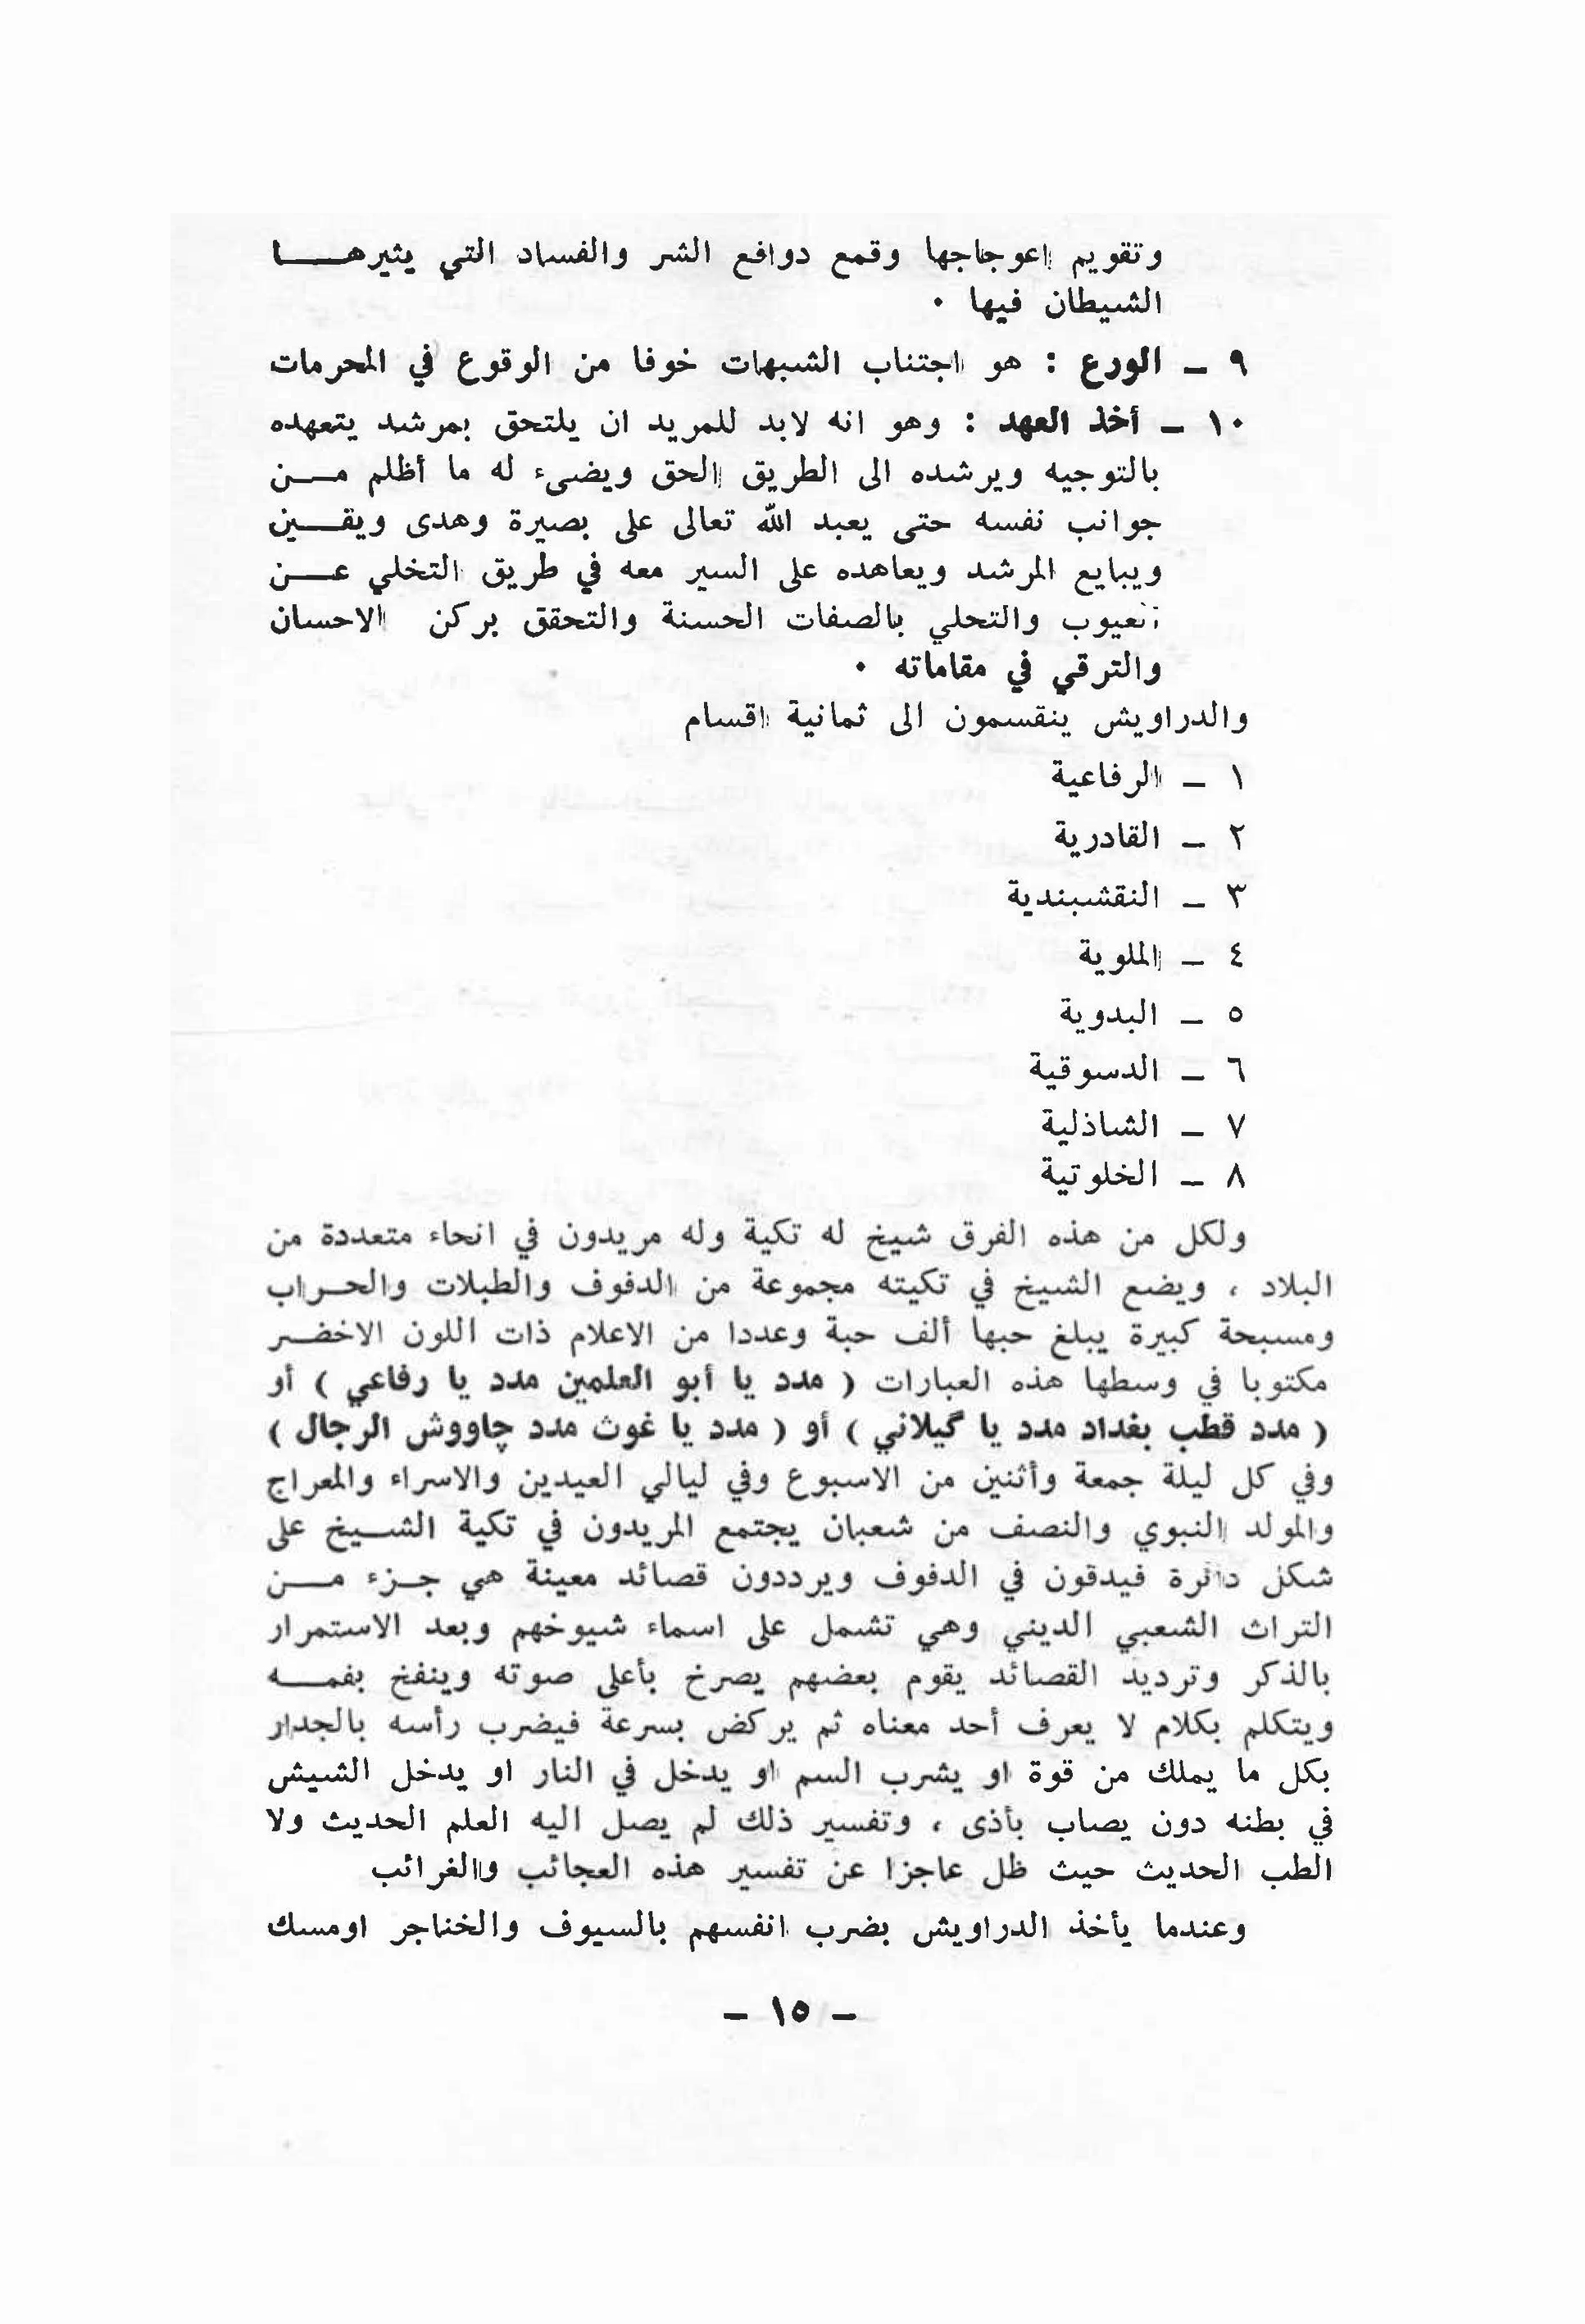 وتقويم اعوجاجها وقمع دوافع الشر والفساد التي يثيرها
الشيطان فيها ٠
٩ ــ الورع : هو اجتناب الشبهات خوفا من الوقوع في المحرمات
١٠ ــ أخذ العهد : وهو انه لابد للمريد ان يلتحق بمرشد يتعهده
بالتوجيه ويرشده الى الطريق الحق ويضيء له ما أظلم من
جوانب نفسه حتى يعبد الله تعالى على بصيرة وهدى ويقين
ويبايع المرشد ويعاهده على السير معه في طريق التخلي عن
العيوب والتحلي بالصفات الحسنة والتحقق بركن الاحسان
والترقي في مقاماته ٠
والدراويش ينقسمون الى ثمانية اقسام
١ ــ الرفاعية
٢ ــ القادرية
٣ ــ النقشبندية
٤ ــ الملوية
٥ ــ البدوية
٦ ــ الدسوقية
٧ ــ الشاذلية
٨ ــ الخلوتية
ولكل من هذه الفرق شيخ له تكية وله مريدون في انحاء متعددة من
البلاد ، ويضع الشيخ في تكيته مجموعة من الدفوف والطبلات والحراب
ومسبحة كبيرة يبلغ حبها ألف حبة وعددا من الاعلام ذات اللون الاخضر
مكتوبا في وسطها هذه العبارات ( مدد يا أبو العلمين مدد يا رفاعي ) أو
( مدد قطب بغداد مدد يا گيلاني ) أو ( مدد يا غوث مدد چاووش الرجال )
وفي كل ليلة جمعة وأثنين من الاسبوع وفي ليالي العيدين والاسراء والمعراج
والمولد النبوي والنصف من شعبان يجتمع المريدون في تكية الشيخ على
شكل دائرة فيدقون في الدفوف ويرددون قصائد معينة هي جزء من
التراث الشعبي الديني وهي تشمل على اسماء شيوخهم وبعد الاستمرار
بالذكر وترديد القصائد يقوم بعضهم يصرخ بأعلى صوته وينفخ بفمه
ويتكلم بكلام لا يعرف أحد معناه ثم يركض بسرعة فيضرب رأسه بالجدار
بكل ما يملك من قوة او يشرب السم او يدخل في النار او يدخل الشيش
في بطنه دون يصاب بأذى ، وتفسير ذلك لم يصل اليه العلم الحديث ولا
الطب الحديث حيث ظل عاجزا عن تفسير هذه العجائب والغرائب
وعندما يأخذ الدراويش بضرب انفسهم بالسيوف والخناجر اومسك
ــ ١٥ ــ